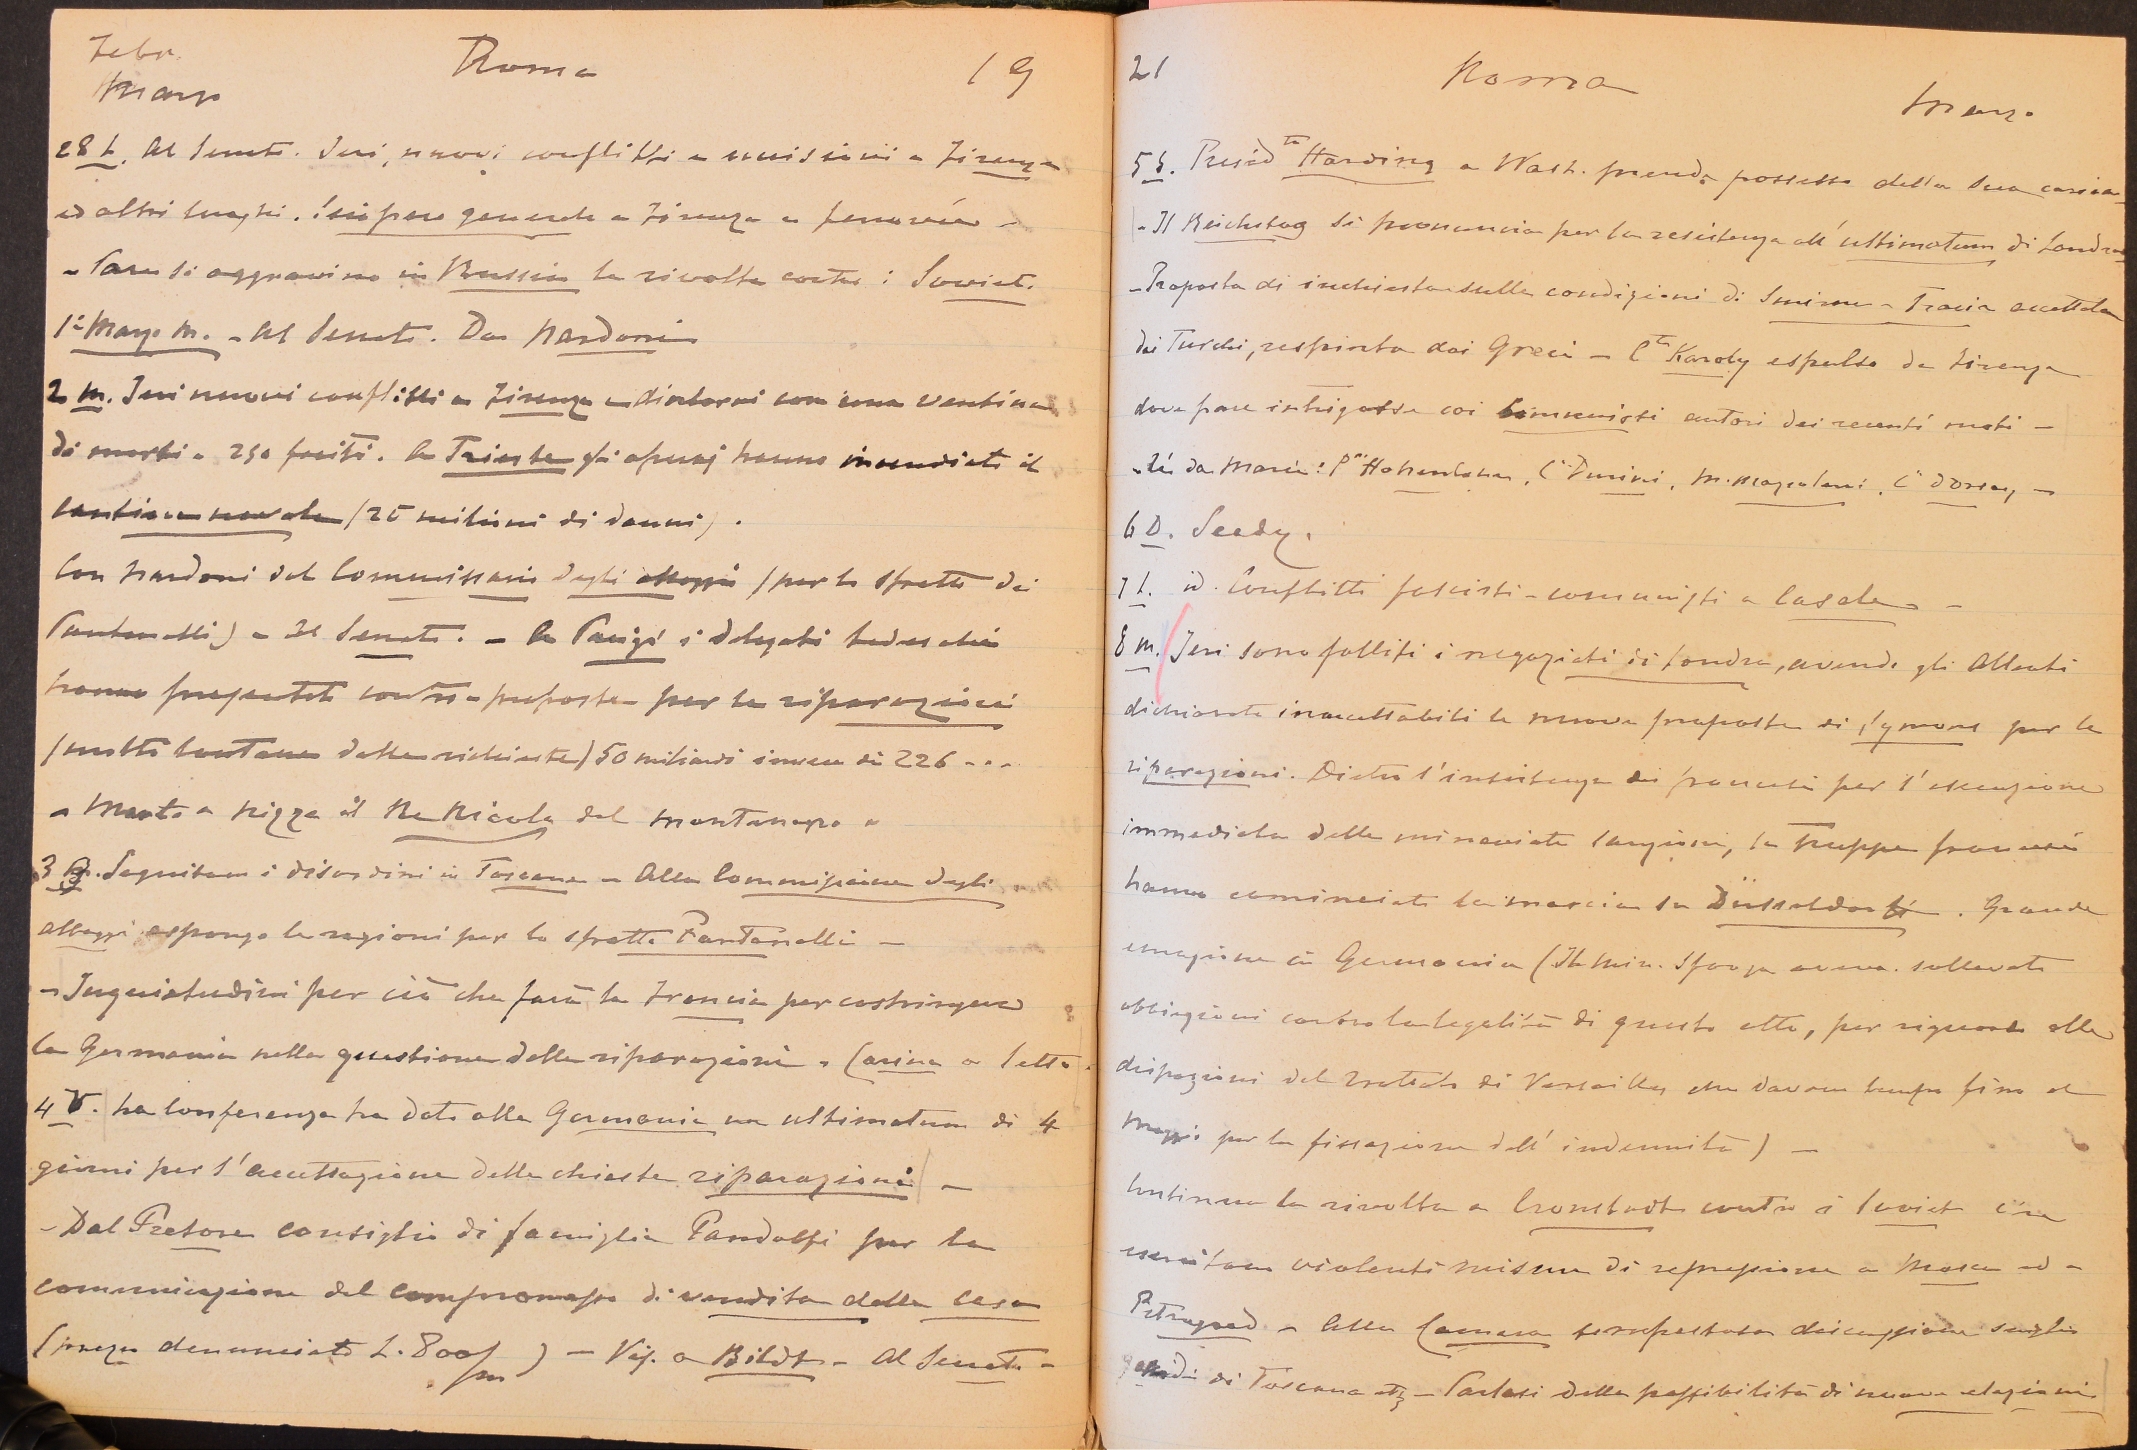 Febr.
Marzo
Roma
19
28 L. Al Senato. Ieri, nuovi conflitti e uccisioni a Firenze
ed altri luoghi. Sciopero generale a Firenze e ferrovie –
– Pare si aggravino in Russia le rivolte contro i Soviet.
1° Marzo M. – Al Senato. Da Nardoni
2 M. Ieri nuovi conflitti a Firenze e dintorni con una ventina
di morti e 250 feriti. A Trieste gli operaj hanno incendiato il
cantiere navale (25 milioni di danni).
Con Nardoni dal Commissario degli alloggi (per lo sfratto dei
Pantanelli) – Al Senato. – A Parigi i delegati tedeschi
hanno presentato contro-proposte per le riparazioni
(molto lontane dalle richieste) 50 miliardi invece di 226 ...
– Morto a Nizza il Re Nicola del Montenegro –
3 G. Seguitano i disordini in Toscana – Alla Commissione degli
alloggi espongo le ragioni per lo sfratto Pantanelli –
– Inquietudini per ciò che farà la Francia per costringere
la Germania nella questione delle riparazioni. Carina a letto.
4 V. La Conferenza ha dato alla Germania un ultimatum di 4
giorni per l'accettazione delle chieste riparazioni –
– Dal Pretore consiglio di famiglia Pandolfi per la
comunicazione del compromesso di vendita della casa
(prezzo denunciato L. 800/m) – Vis. a Bildt – Al Senato –
21
Roma
Marzo
5 S. Presid.te Harding a Wash. prende possesso della sua carica
– Il Reichstag si pronuncia per la resistenza all'ultimatum di Londra
– Proposta di inchiesta sulle condizioni di Smirne – Tracia accettata
dai Turchi, respinta dai Greci – C.te Karoly espulso da Firenze
dove pare intrigasse coi comunisti autori dei recenti moti –
– Tè da Maria: P.ssa Hohenlohe, C.ssa Durini, M. , C.ssa Dorsay –
6 D. Seedy.
7 L. id. Conflitti fascisti-comunisti a Casale –
8 M. Ieri sono falliti i negoziati di Londra, avendo gli Alleati
dichiarate inaccettabili le nuove proposte di Symons per le
riparazioni. Dietro l'insistenza dei francesi per l'esecuzione
immediata delle minacciate sanzioni, le truppe francesi
hanno cominciato la marcia su Düsseldorf. Grande
emozione in Germania (Il Min. Sforza aveva sollevato
obbiezioni contro la legalità di questo atto, per riguardo alle
disposizioni del trattato di Versailles che davano tempo fino al
Maggio per la fissazione dell'indennità) –
Continua la rivolta a Cronstadt contro i Soviet che
esercitano violenti misure di repressione a Mosca ed a
Petrograd – Alla Camera tempestosa discussione sugli
di Toscana etc – Parlasi della possibilità di nuove elezioni